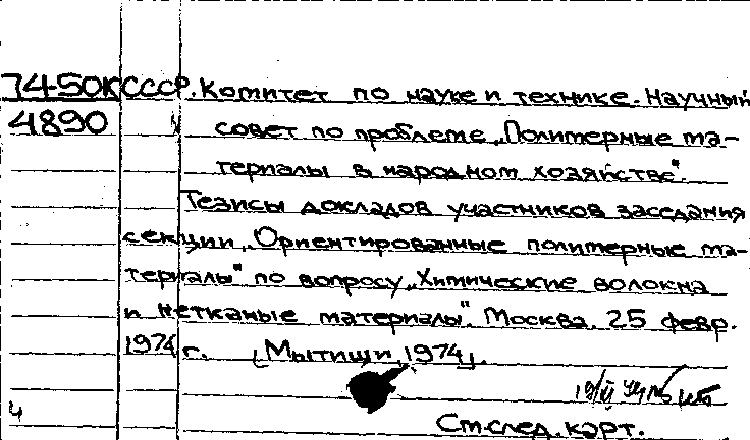 74-50К СССР. Комитет по науке и технике. Научный
4890 совет по проблеме „Полимерные ма-
териалы в народном хозяйстве".
Тезисы докладов участников заседания
секции „Ориентированные полимерные ма-
териалы" по вопросу „Химические волокна
и нетканые материалы". Москва. 25 февр.
1974 г. [Мытищи, 1974].
См.след.карт.
4